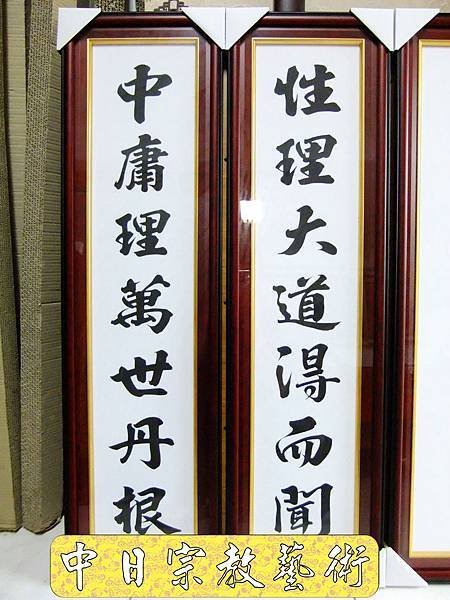 性理大道得而聞
中庸理萬世丹根
中日宗教藝術